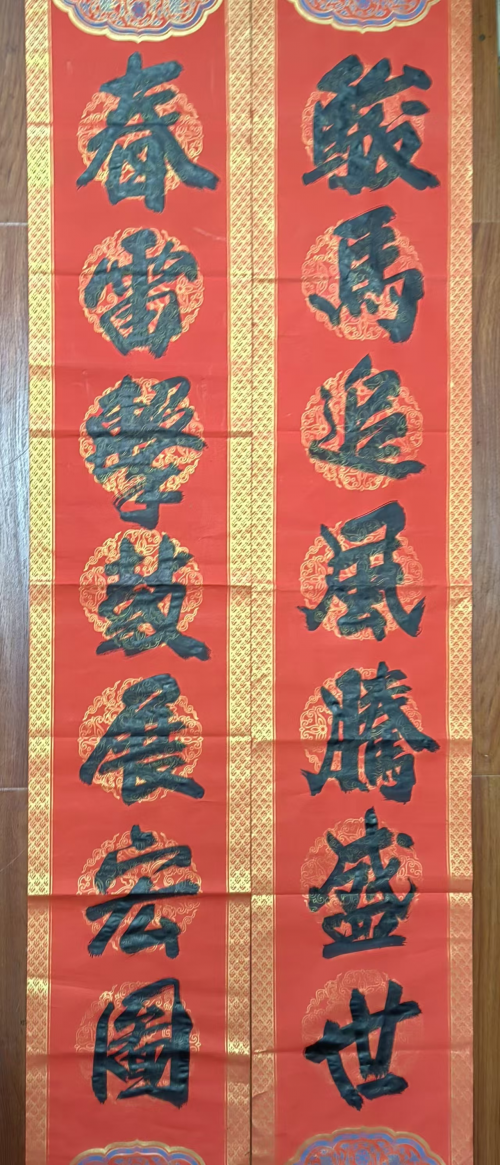 駿馬追風騰盛世
春雷擊鼓展宏圖